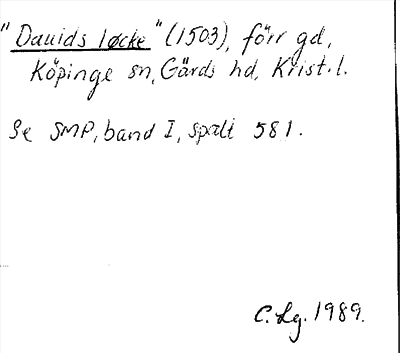 "Dauids løcke" (1503), förr gd,
Köpinge sn, Gärds hd, Krist. l.
Se SMP, band I, spalt 581.
C. Lg. 1989.